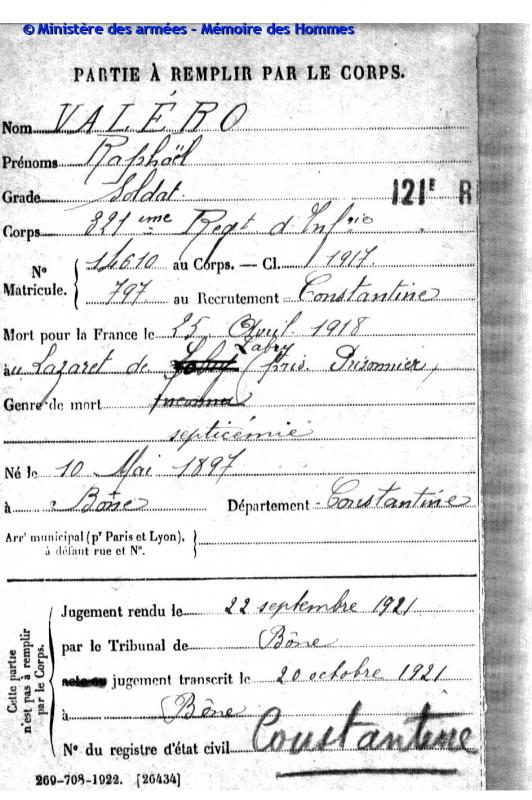 © Ministère des armées - Mémoire des Hommes
PARTIE À REMPLIR PAR LE CORPS.
Nom VALÉRO
Prénoms Raphaël
Grade Soldat
121E R
Corps 321 eme Regt d'Infrie
14610 au Corps. — Cl. 1917
No Matricule.
797 au Recrutement Constantine
Mort pour la France le 25 Avril 1918
Labry
au Lazaret de (pris. Prisonnier,
Genre de mort Inconnu
septicémie
Né le 10 Mai 1897
à Bône Département Constantine
Arrt municipal (pr Paris et Lyon),
à défaut rue et No.
Cette partie
n'est pas à remplir
par le Corps.
Jugement rendu le 22 septembre 1921
par le Tribunal de Bône
acte ou jugement transcrit le 20 octobre 1921
à Bône
No du registre d'état civil
Constantine
269-708-1922. [26434]